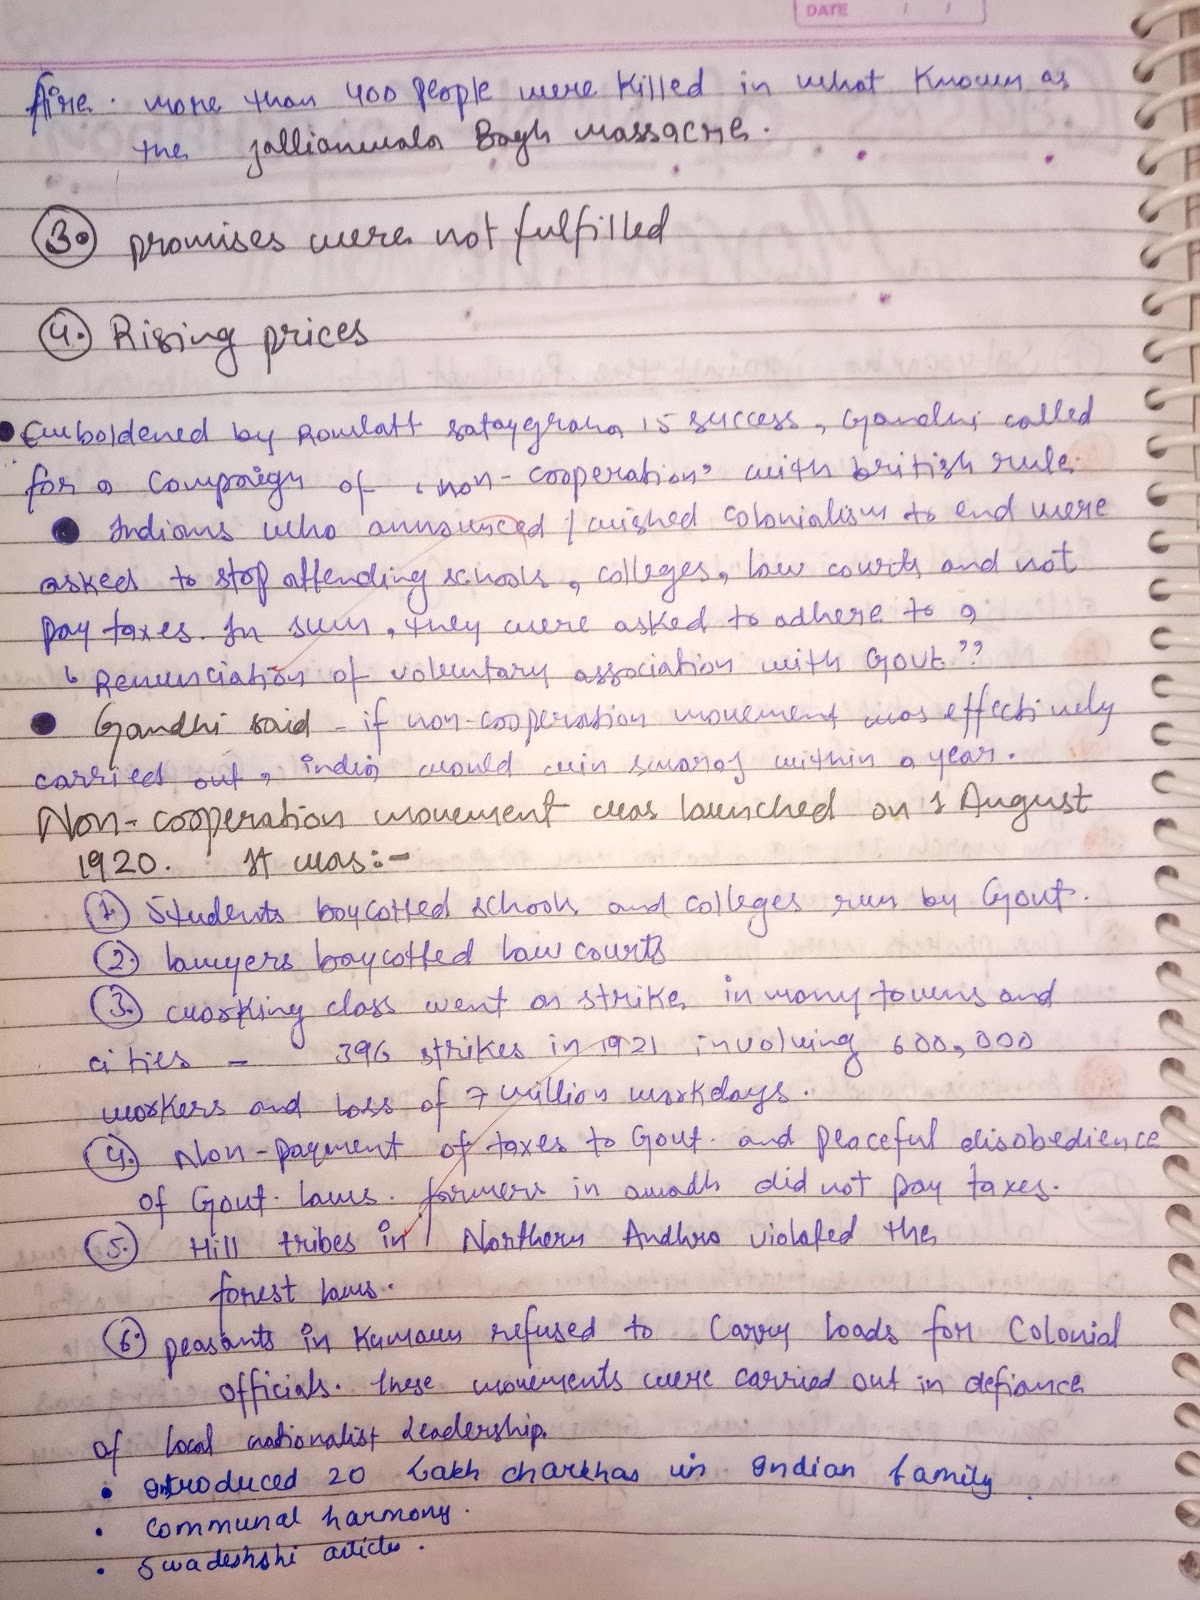 DATE / /
fire. more than 400 people were killed in what known as
the Jallianwala Bagh massacre.
3. promises were not fulfilled
4. Rising prices
• Emboldened by Rowlatt sataygraha 's success, Gandhi called
for a Campaign of 'non-cooperation' with british rule.
• Indians who announced / wished colonialism to end were
asked to stop attending schools, colleges, law courts and not
pay taxes. In sum, they were asked to adhere to a
"Renunciation of voluntary association with Govt"
• Gandhi said - if non-cooperation movement was effectively
carried out, india would win swaraj within a year.
Non-cooperation movement was launched on 1 August
1920. It was:-
1. Students boycotted schools and colleges run by Govt.
2. lawyers boycotted law courts
3. working class went on strike in many towns and
cities - 396 strikes in 1921 involving 600,000
workers and loss of 7 million workdays.
4. Non-payment of taxes to Govt. and peaceful disobedience
of Govt. laws. farmers in awadh did not pay taxes.
5. Hill tribes in Northern Andhra violated the
forest laws.
6. peasants in Kumaun refused to Carry loads for Colonial
officials. these movements were carried out in defiance
of local nationalist Leadership.
• Introduced 20 Lakh charkhas in Indian family.
• communal harmony.
• Swadeshshi articles.